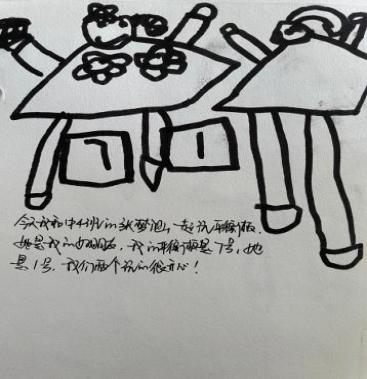 7
1
今天我和中4班的张梦涵一起玩平衡板。
她是我的好朋友，我的平衡板是7号，她
是1号，我们两个玩的很开心！